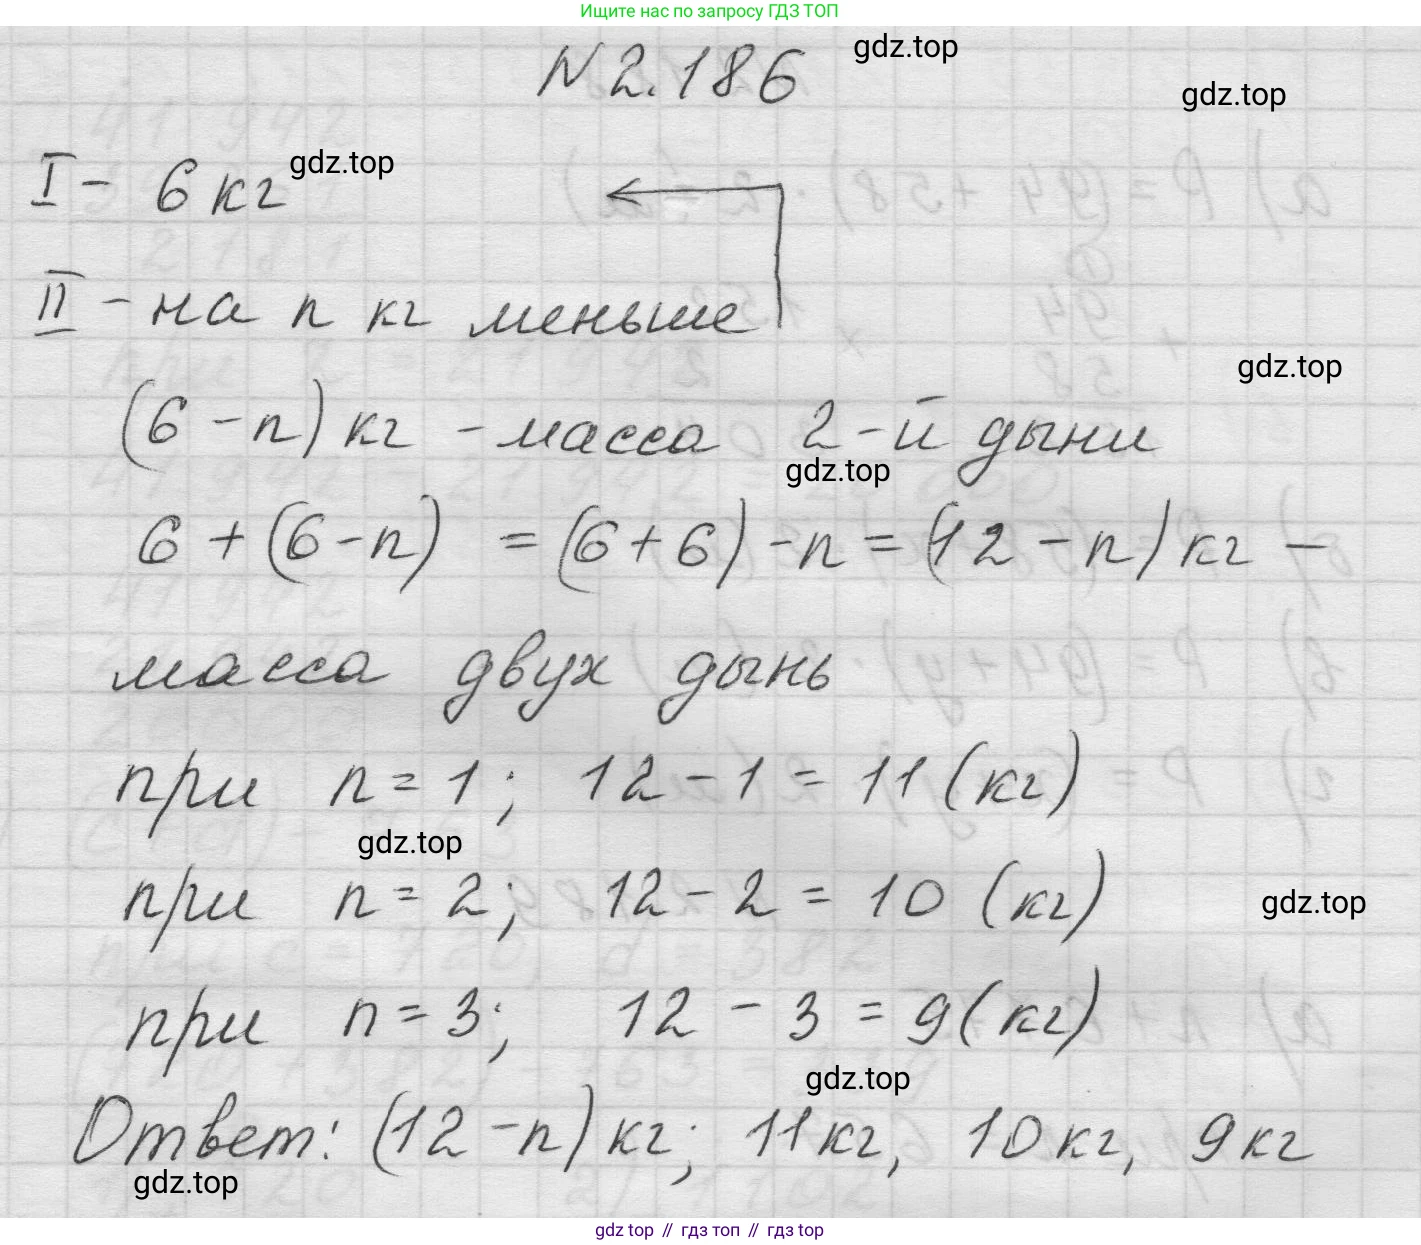 Ищите нас по запросу ГДЗ ТОП
N 2.186
gdz.top
gdz.top
I - 6 кг
gdz.top
II - на n кг меньше
gdz.top
(6 - n) кг - масса 2-й дыни
gdz.top
6 + (6 - n) = (6 + 6) - n = (12 - n) кг -
масса двух дынь
при n = 1; 12 - 1 = 11 (кг)
gdz.top
при n = 2; 12 - 2 = 10 (кг)
gdz.top
при n = 3; 12 - 3 = 9 (кг)
gdz.top
Ответ: (12 - n) кг; 11 кг, 10 кг, 9 кг
gdz.top
gdz top // гдз топ // гдз top